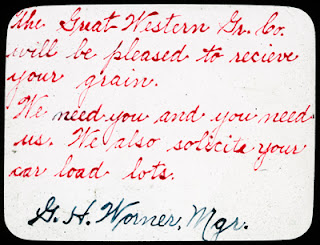 The Great Western Gr. Co.
will be pleased to recieve
your grain.
We need you and you need
us. We also solecite your
car load lots.
G. H. Worner, Mgr.